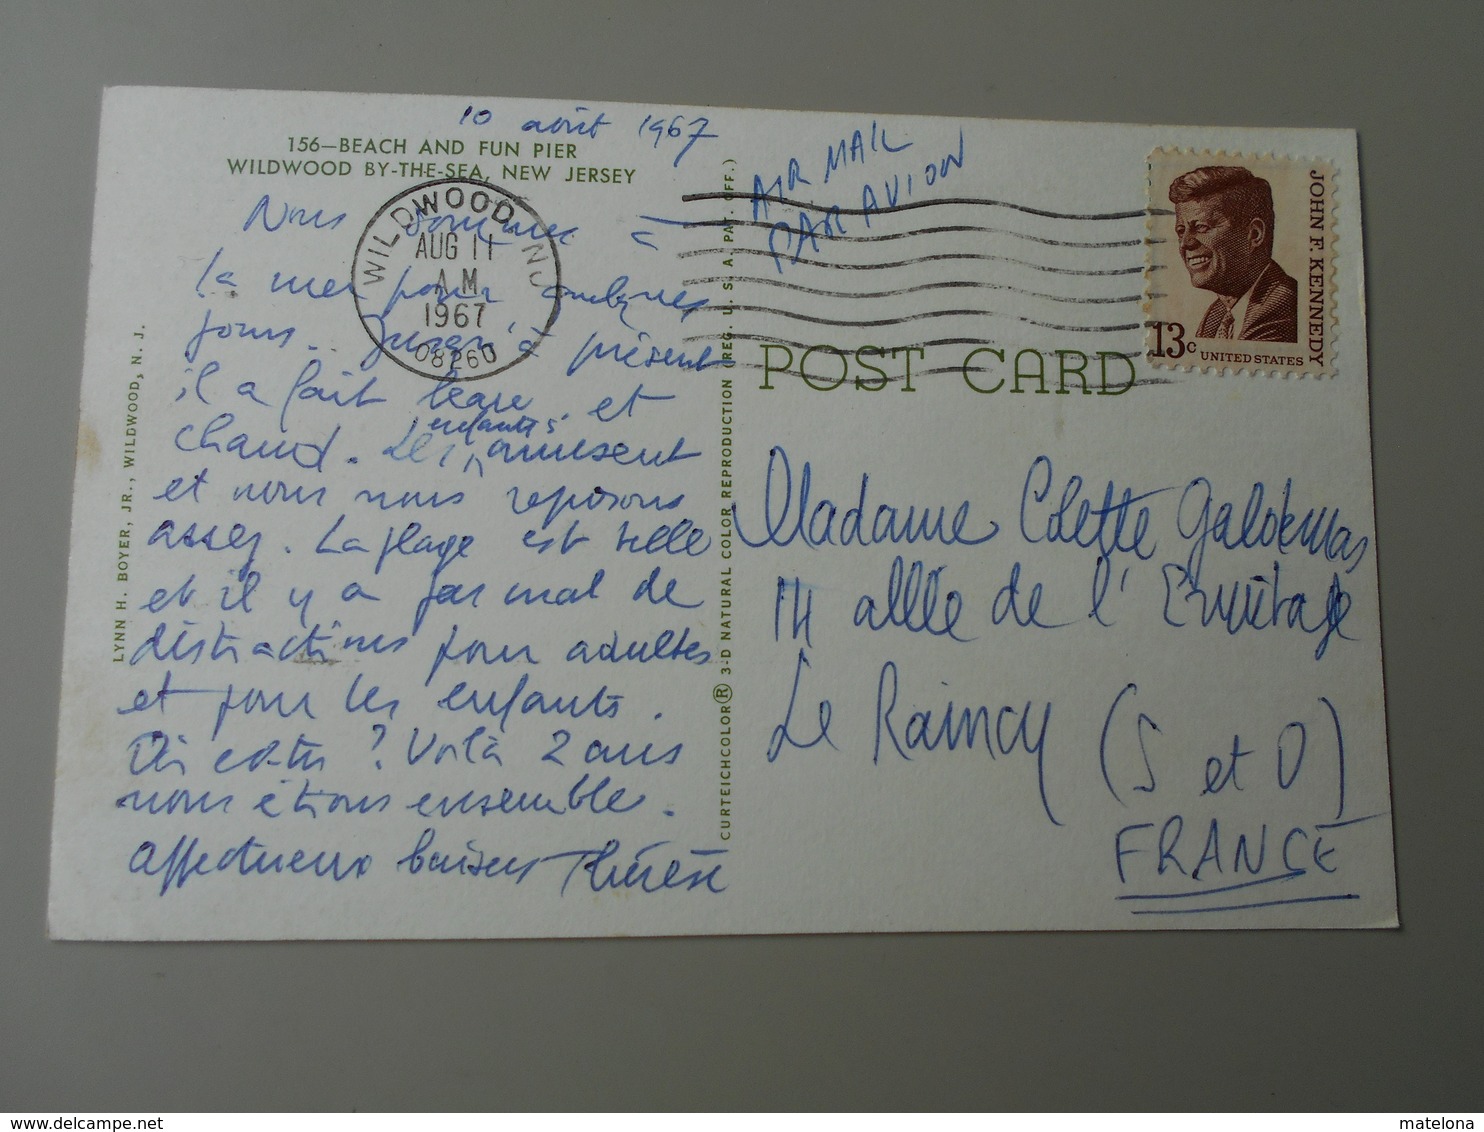 10 août 1967
156—BEACH AND FUN PIER
WILDWOOD BY-THE-SEA, NEW JERSEY
Nous sommes à
la mer pour quelques
jours. Jusqu'à présent
il a fait beau et
chaud. Les enfants s'amusent
et nous nous reposons
assez. La plage est belle
et il y a pas mal de
distractions pour adultes
et pour les enfants.
Où es-tu ? Voilà 2 ans
nous étions ensemble.
Affectueux baisers Thérèse
WILDWOOD, NJ
AUG 11
A M
1967
08260
LYNN H. BOYER, JR., WILDWOOD, N. J.
CURTEICHCOLOR® 3-D NATURAL COLOR REPRODUCTION (REG. U. S. A. PAT. OFF.)
AIR MAIL
PAR AVION
JOHN F. KENNEDY
13c UNITED STATES
POST CARD
Madame Colette
14 allée de l'Ermitage
Le Raincy (S et O)
FRANCE
delcampe.net
matelona